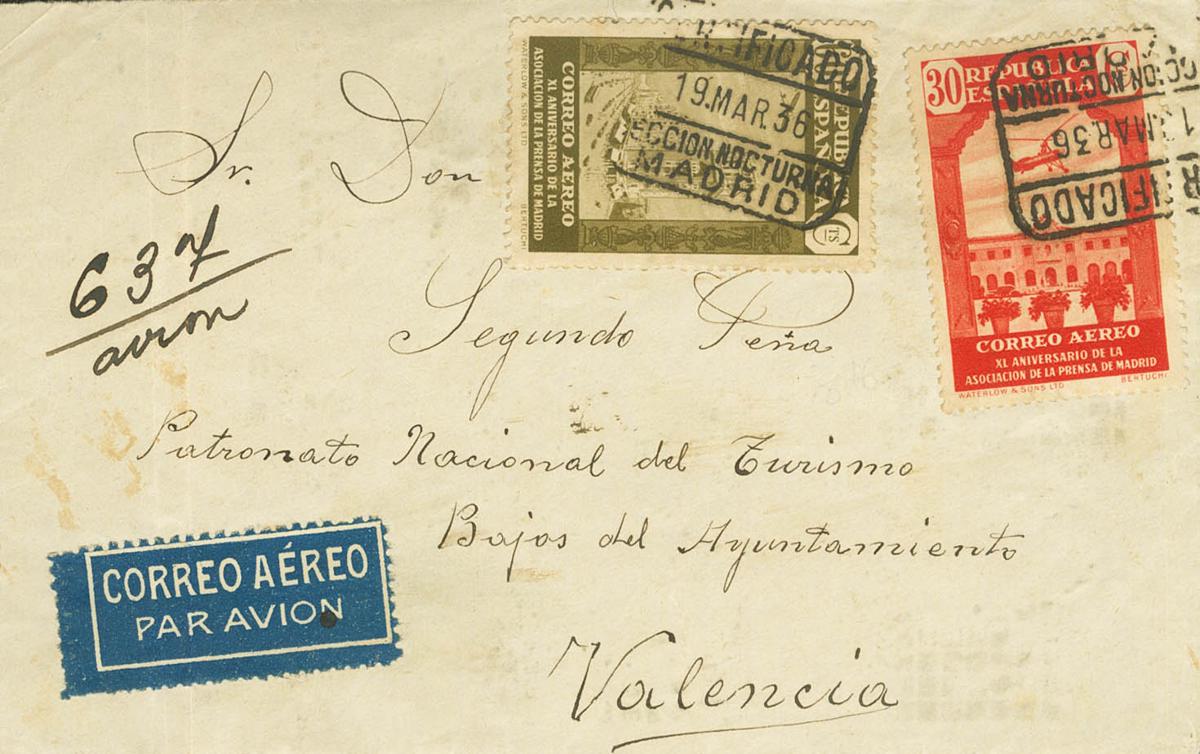 Sr. Don
Segundo Peña
Patronato Nacional del Turismo
Bajos del Ayuntamiento
Valencia
637
avion
CORREO AÉREO
PAR AVION
REPUBLICA
ESPAÑOLA
CTS
CORREO AEREO
XL ANIVERSARIO DE LA
ASOCIACION DE LA PRENSA DE MADRID
WATERLOW & SONS LTD BERTUCHI
TIFICADO
19.MAR.36
ECCION NOCTURNA
MADRID
30 REPUBLICA CTS
ESPAÑOLA
CORREO AEREO
XL ANIVERSARIO DE LA
ASOCIACION DE LA PRENSA DE MADRID
WATERLOW & SONS LTD BERTUCHI
RTIFICADO
MAR.36
CCION NOCTURNA
DRID